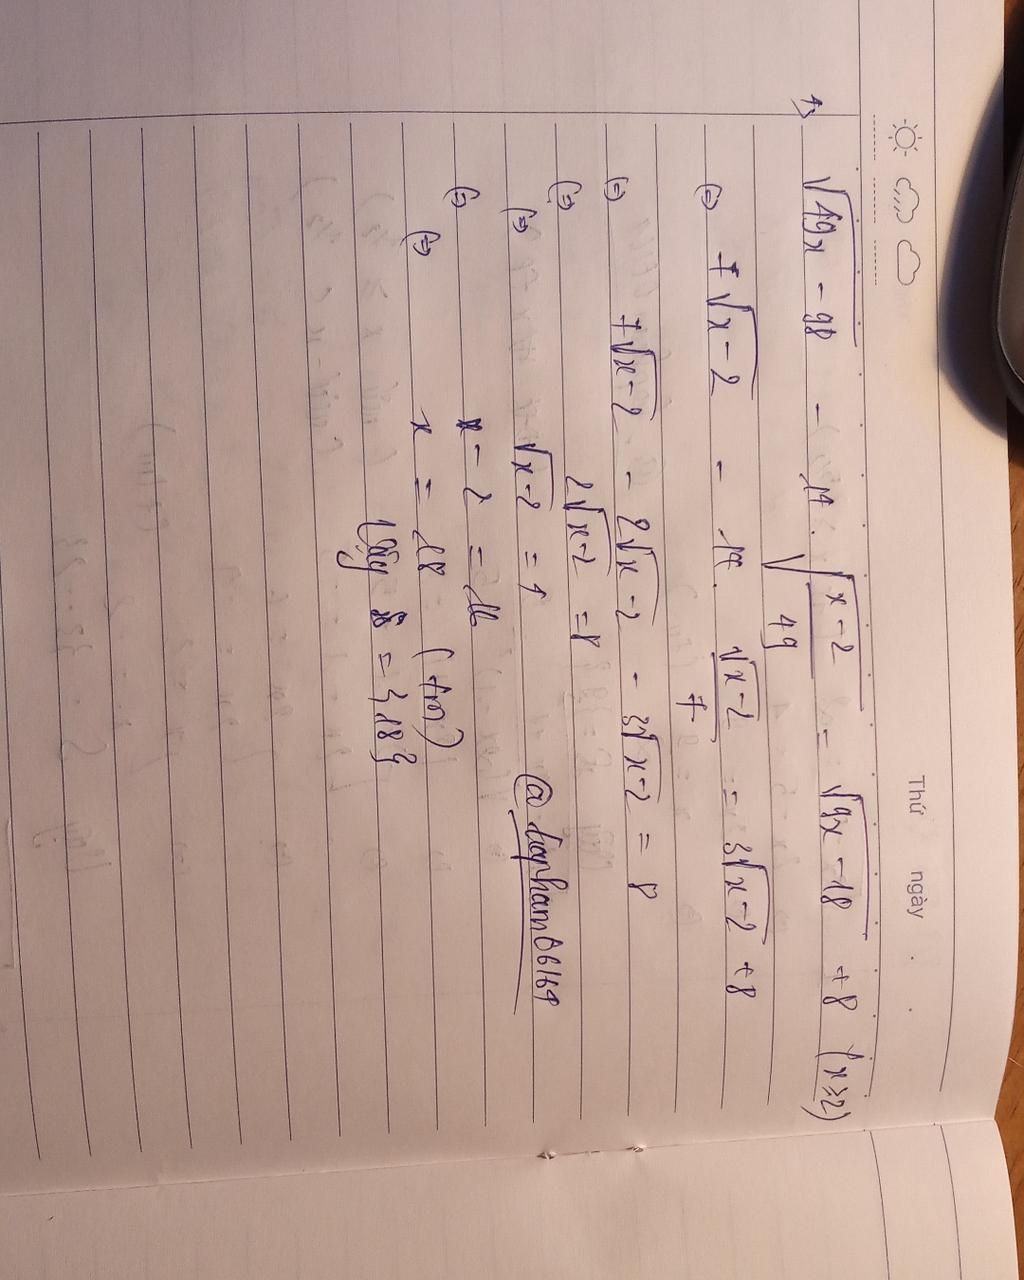 Thứ ngày . .
4) √(49x - 98) - 14 . √((x-2)/49) = √(9x - 18) + 8 (x ≥ 2)
(=) 7√(x-2) - 14 . √(x-2)/7 = 3√(x-2) + 8
(=) 7√(x-2) - 2√(x-2) - 3√(x-2) = 8
(=) 2√(x-2) = 8
(=) √(x-2) = 4
(=) x - 2 = 16
(=) x = 18 (tm)
Vậy S = {18}